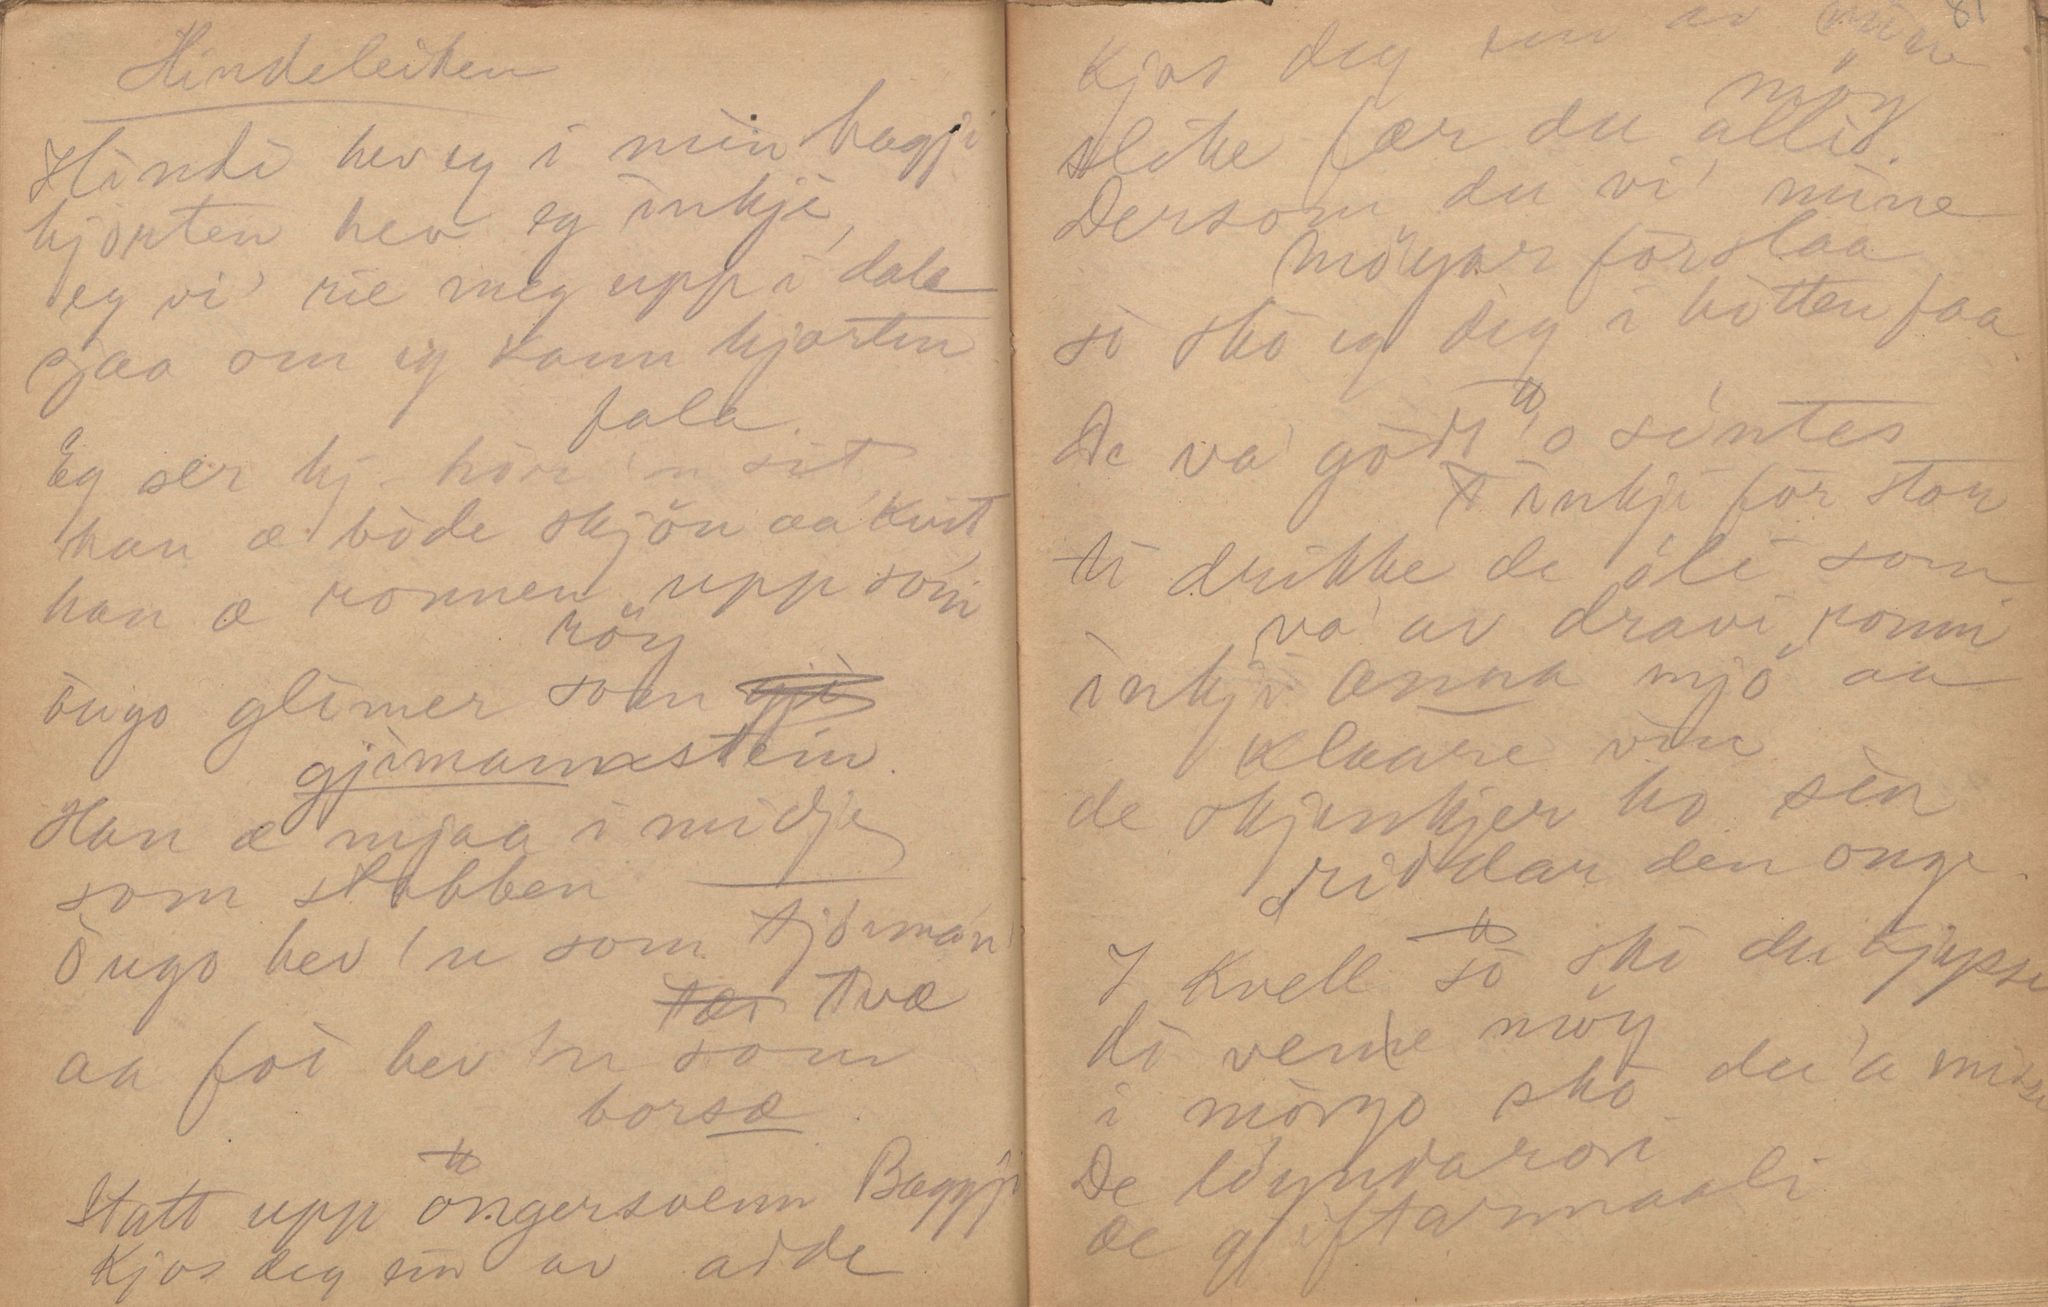 Hindeleiken
Hindi hev eg i min hagji
hjorten hev eg inkji,
eg vi' rie meg upp i dale
sjaa om eg kann hjorten
fala.
Eg ser hj. hör 'n sit
han æ bòde skjön aa kvit
han æ ronnen upp som
röy
öugo glimer som gji
gjimannstein.
Han æ mjaa i midje
som stabben
Öugo hev 'n som tjömán
tæi tvæ
aa foi hev 'n som
borsæ.
Statt upp öngersvenn Baggji
Kjos deg ein av adde
81
Kjos deg ein av mine
möy
slike fær du alli.
Dersom du vi' mine
möyar forslaa
sò skò eg deg i hòtten faa
De va' gödt 'o sintes
inkji for ston
ti drikke de öli som
va' av dravi ronni
inkji anna mjö aa
klaare vin
de skjenkjer ho sin
riddar den onge.
I kvell sò skò du kjysse
di vene möy
i mörgo skò du 'a misse
De löyndarori
æ giftarmaali